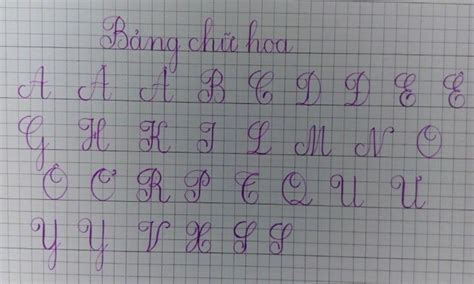 Bảng chữ hoa
A Ă Â B C D Đ E Ê
G H K I L M N O
Ô Ơ R P T Q U Ư
Y Y V X S S